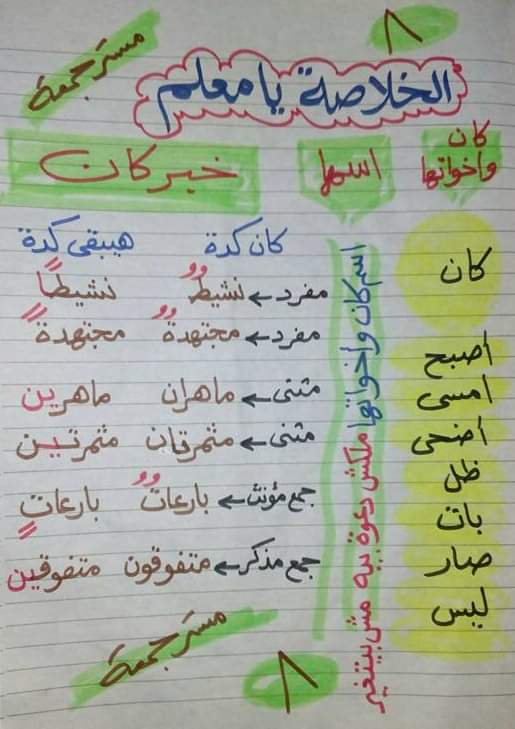 ٨
مستر جمعة
الخلاصة يا معلم
كان واخواتها
اسمها
خبر كان
كان كدة هيبقى كدة
مفرد ← نشيطٌ نشيطًا
مفرد ← مجتهدةٌ مجتهدةً
مثنى ← ماهران ماهرين
مثنى ← مثمرتان مثمرتين
جمع مؤنث ← بارعاتٌ بارعاتٍ
جمع مذكر ← متفوقون متفوقين
اسم كان وأخواتها ملكش دعوة بيه مش بيتغير
كان
أصبح
امسى
أضحى
ظل
بات
صار
ليس
مستر جمعة
٨